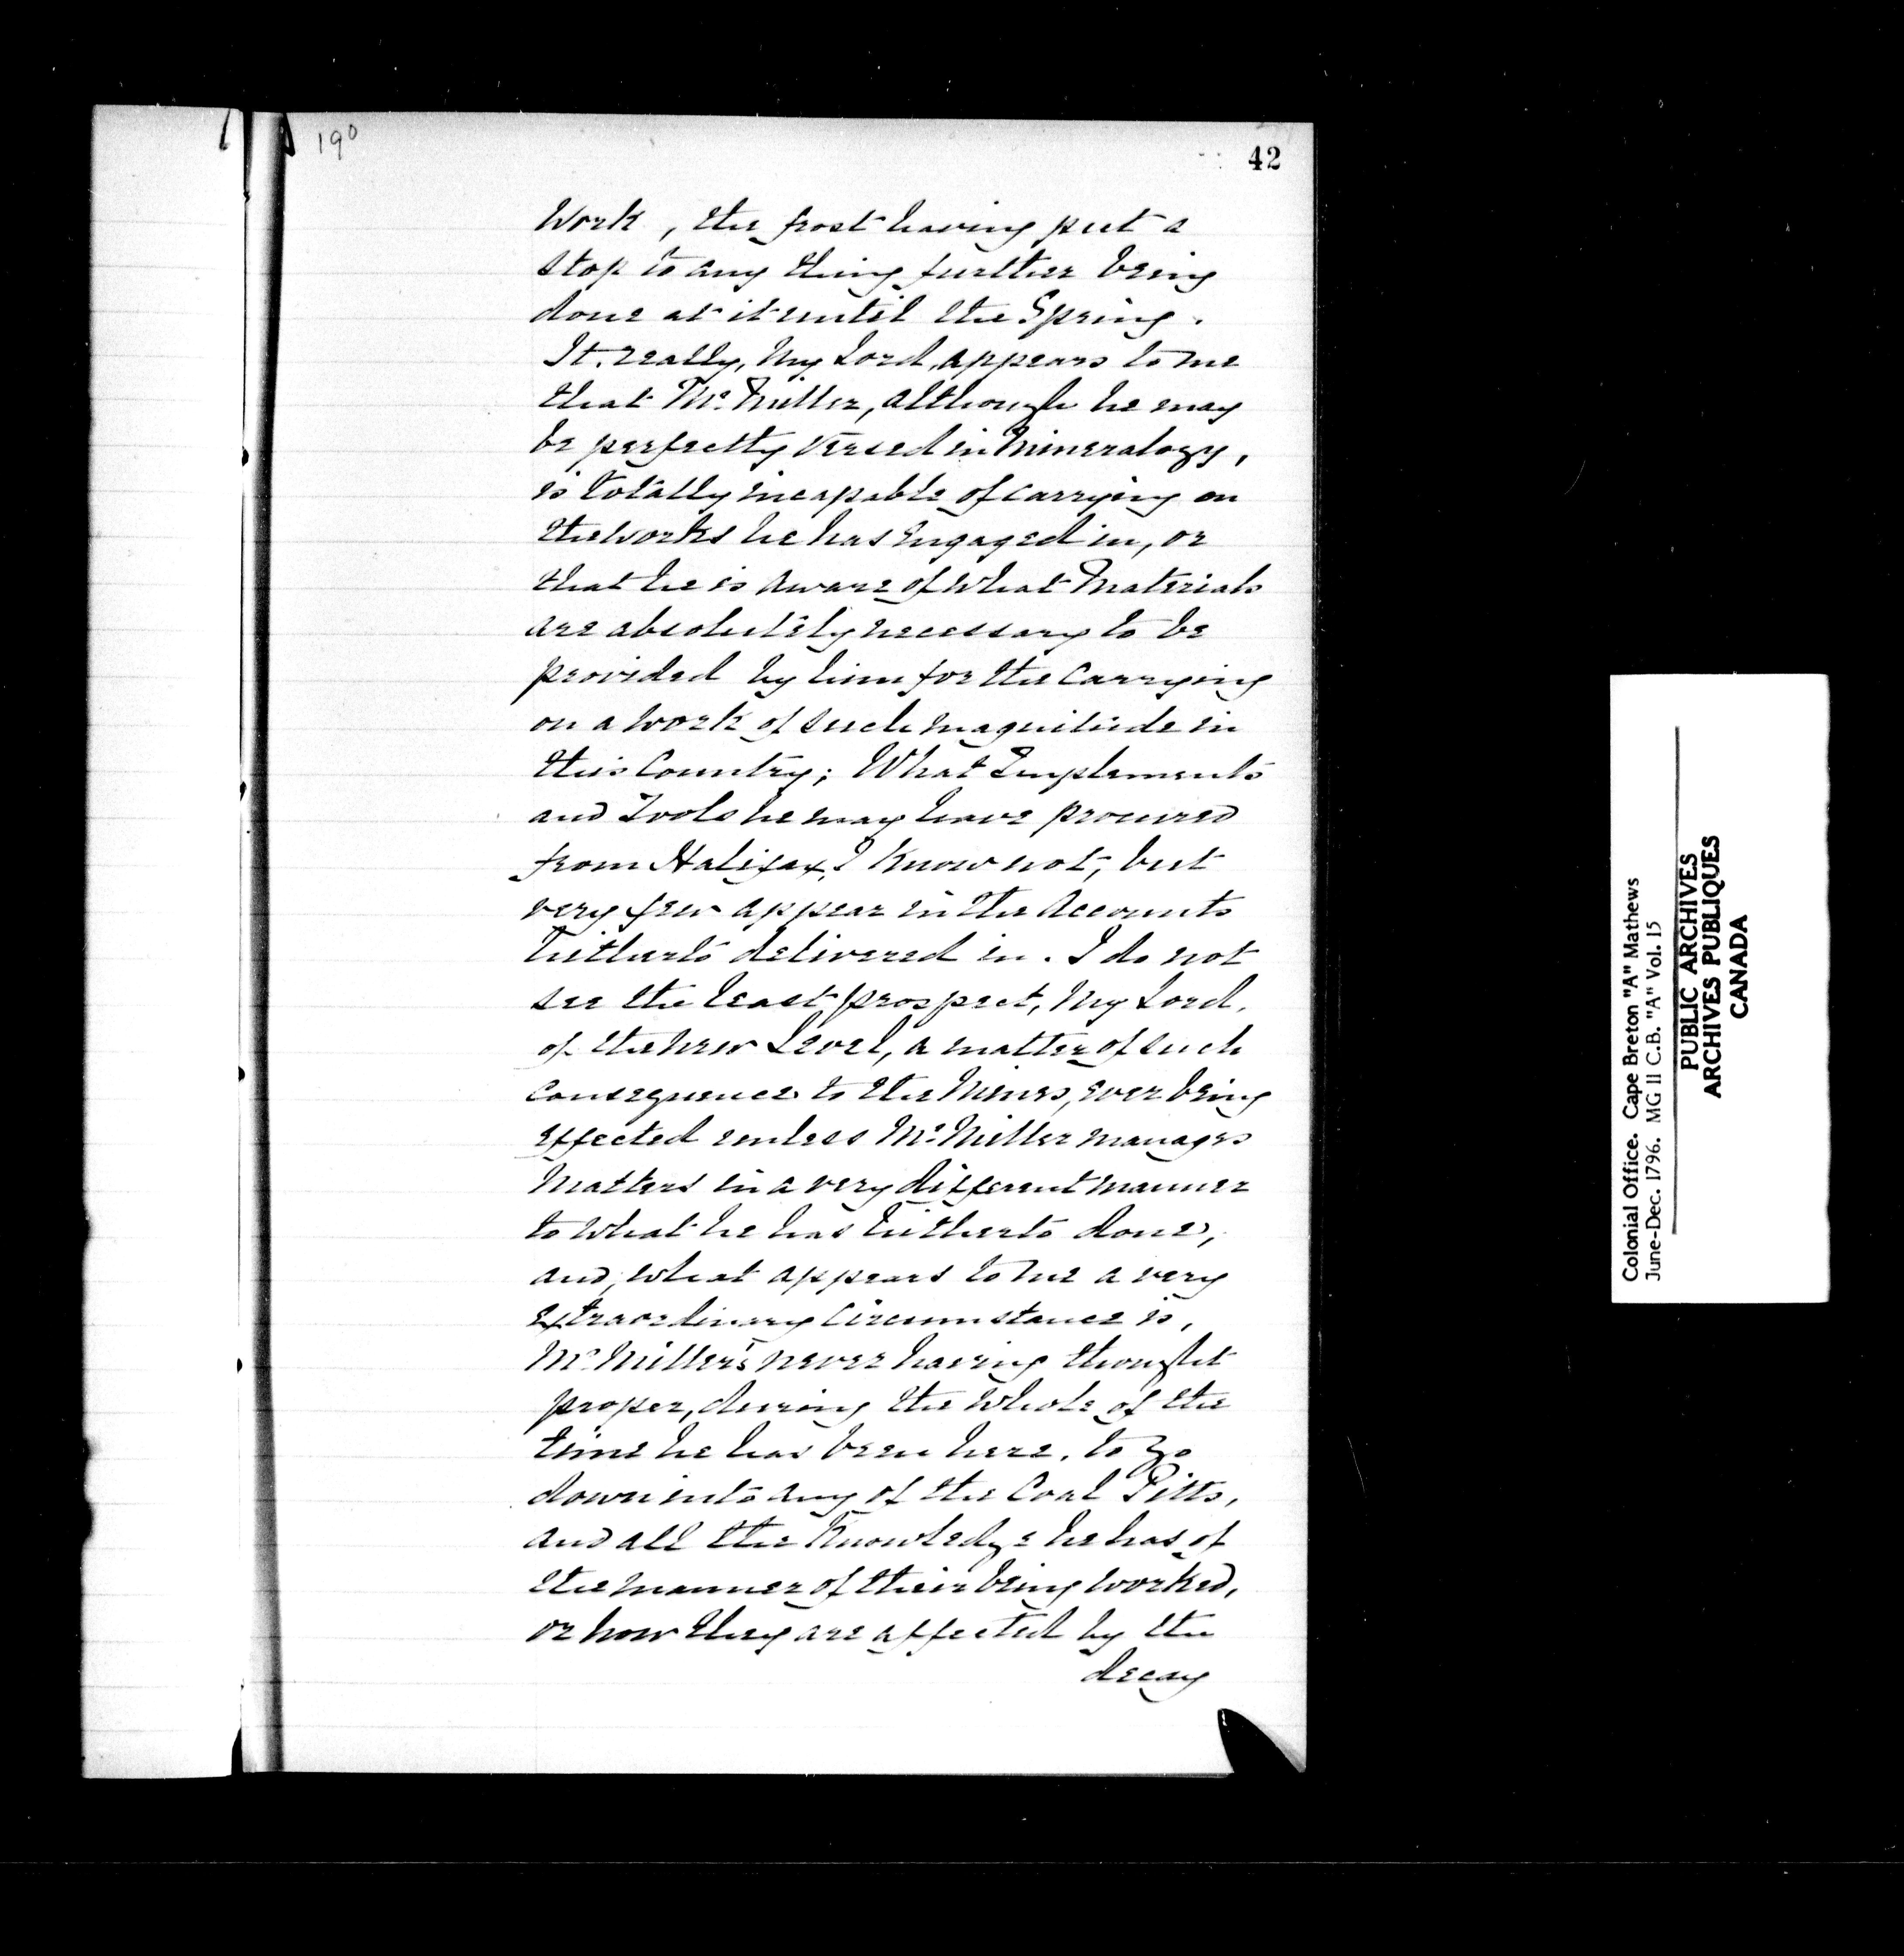 190
42
Work, the frost having put a
stop to any thing further being
done at it until the Spring.
It really, My Lord, appears to me
that Mr. Miller, although he may
be perfectly versed in Mineralogy,
is totally incapable of carrying on
the works he has engaged in, or
that he is aware of what Materials
are absolutely necessary to be
provided by him for the Carrying
on a work of such magnitude in
this Country; What Implements
and Tools he may have procured
from Halifax, I know not, but
very few appear in the Accounts
hitherto delivered in. I do not
see the least prospect, My Lord,
of the new Level, a matter of such
consequence to the Mines, ever being
effected unless Mr. Miller manages
Matters in a very different manner
to what he has hitherto done,
and, what appears to me a very
extraordinary Circumstance is,
Mr. Miller's never having thought
proper, during the whole of the
time he has been here, to go
down into any of the Coal Pitts,
and all the Knowledge he has of
the manner of their being worked,
or how they are affected by the
decay
Colonial Office. Cape Breton "A" Mathews
June-Dec. 1796. MG 11 C.B. "A" Vol. 15
PUBLIC ARCHIVES
ARCHIVES PUBLIQUES
CANADA